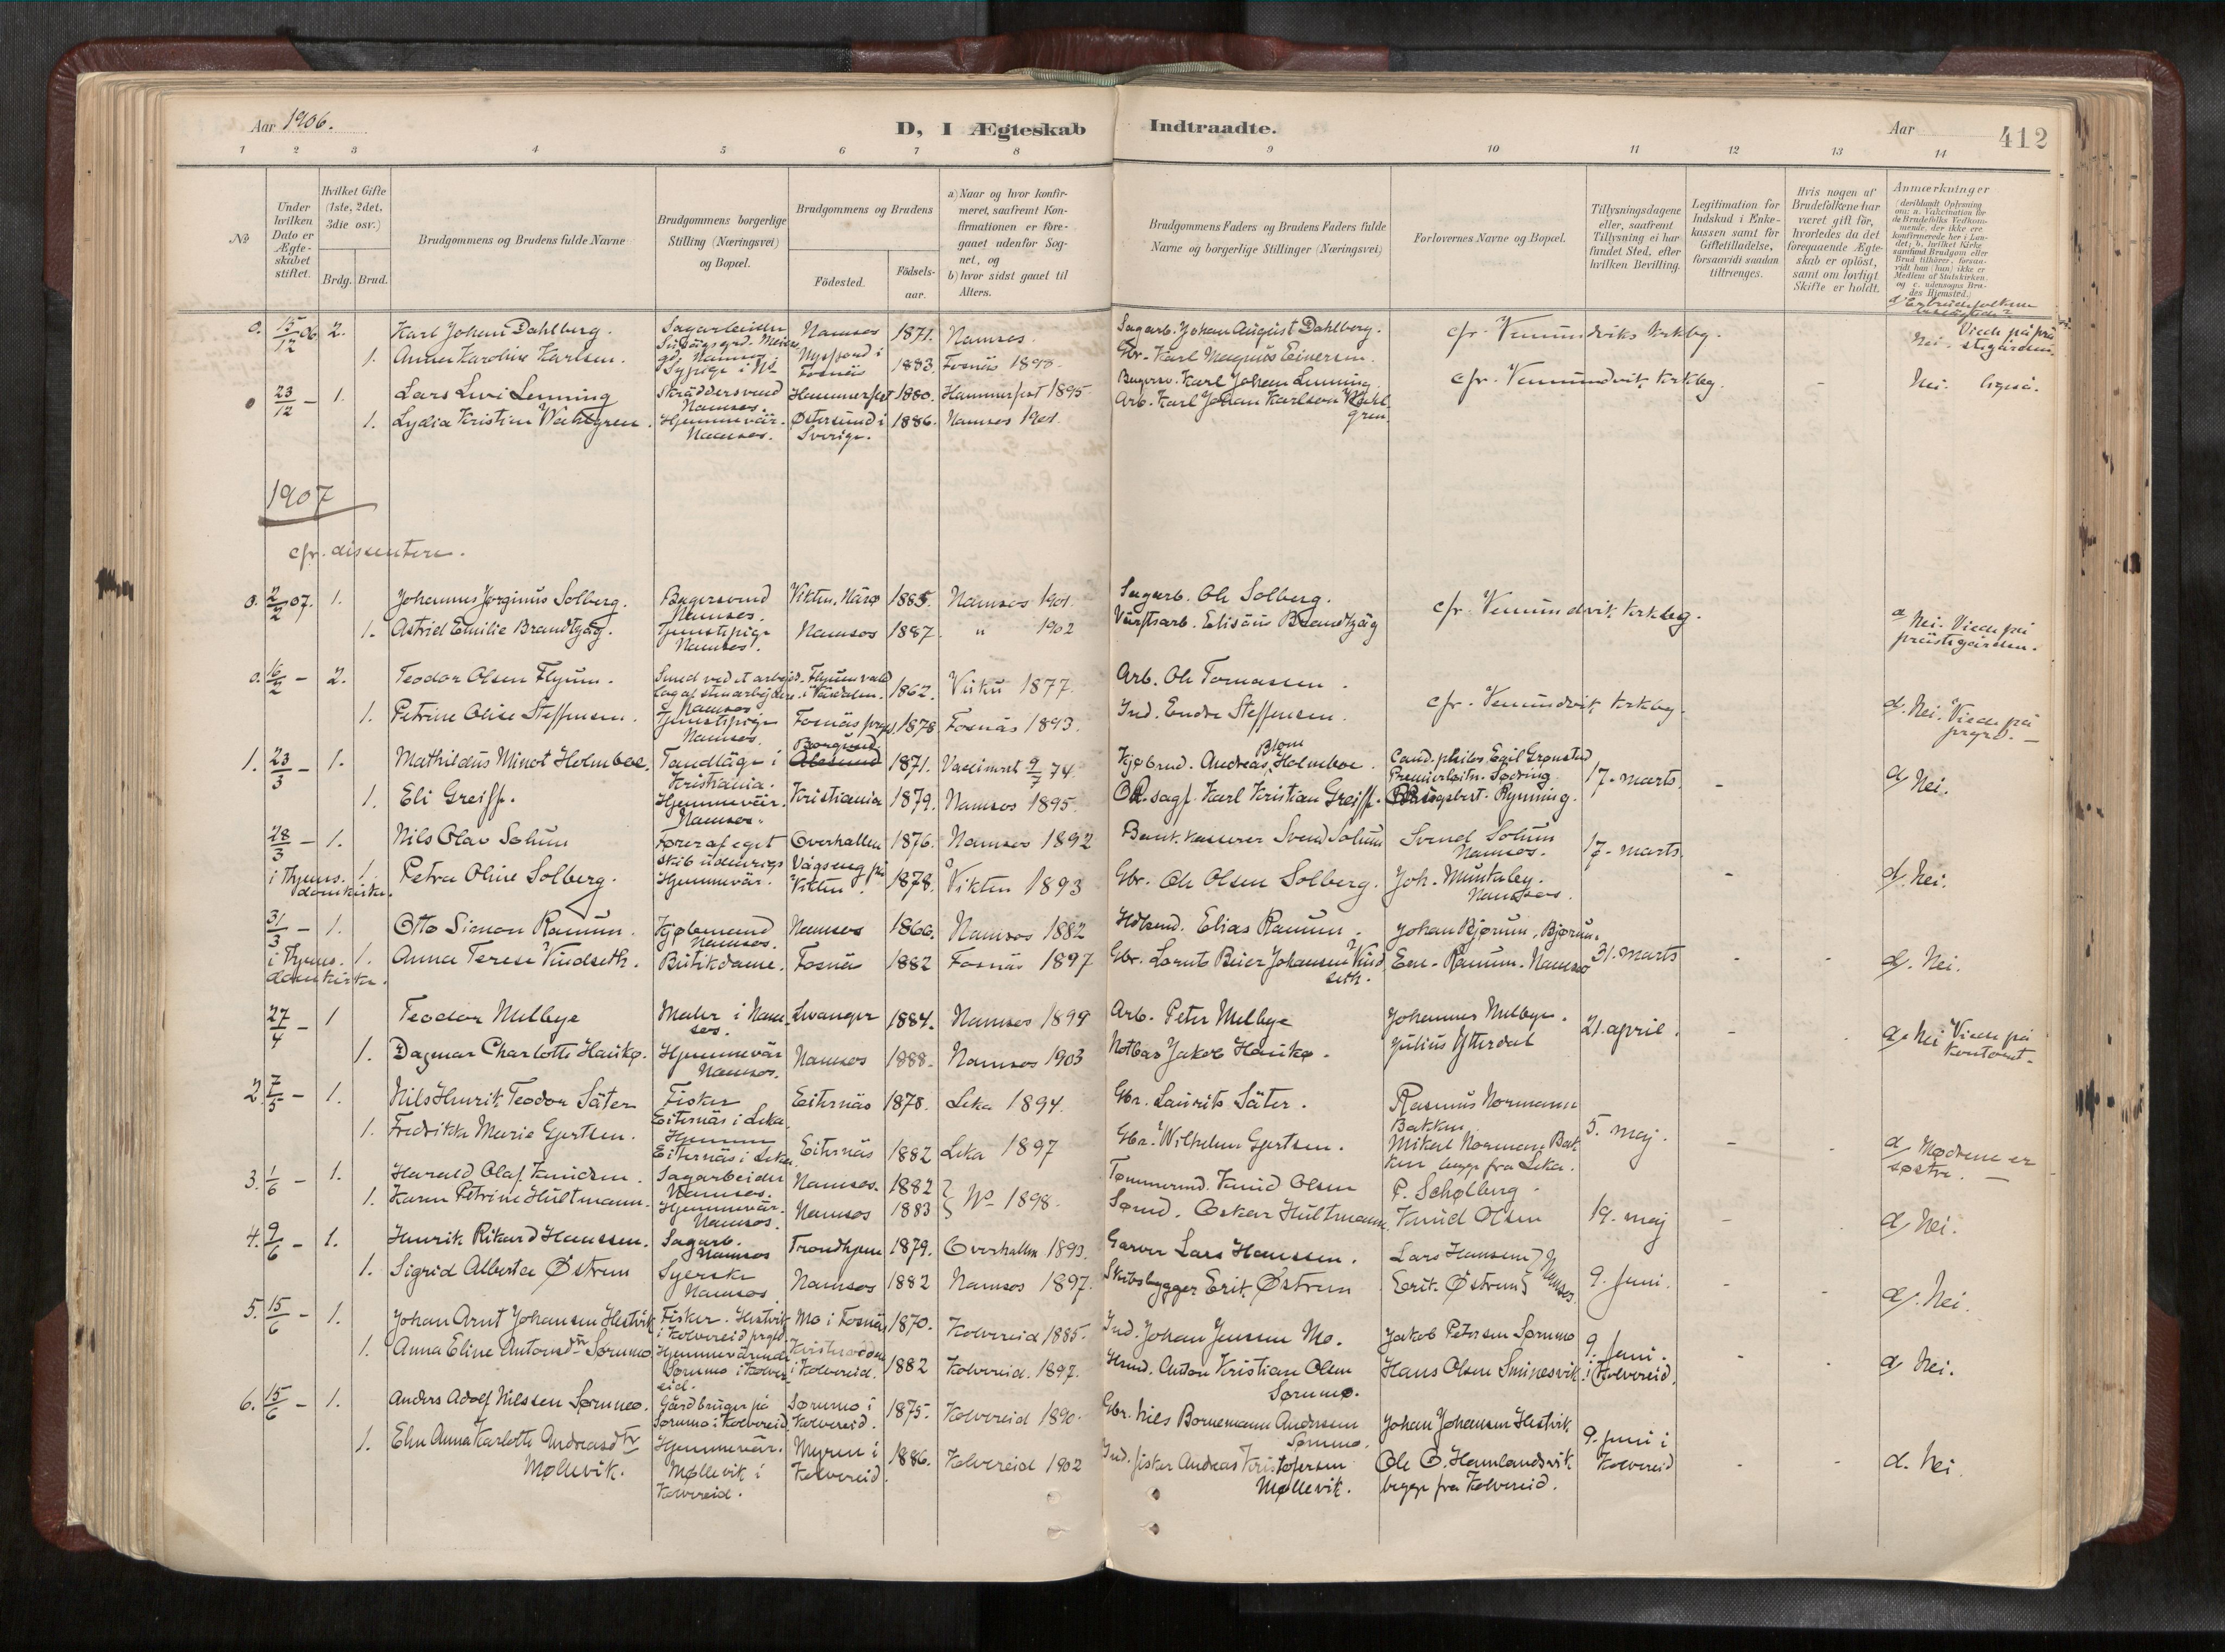 Aar 1906.
D, I Ægteskab Indtraadte.
Aar
412
1 2 3 4 5 6 7 8 9 10 11 12 13 14
No
Under hvilken Dato er Ægteskabet stiftet.
Hvilket Gifte (1ste, 2det, 3die osv.)
Brdg. Brud.
Brudgommens og Brudens fulde Navne
Brudgommens borgerlige Stilling (Næringsvei) og Bopæl.
Brudgommens og Brudens
Fødested.
Fødselsaar.
a) Naar og hvor konfirmeret, saafremt Konfirmationen er foregaaet udenfor Sognet, og
b) hvor sidst gaaet til Alters.
Brudgommens Faders og Brudens Faders fulde Navne og borgerlige Stillinger (Næringsvei)
Forlovernes Navne og Bopæl.
Tillysningsdagene eller, saafremt Tillysning ei har fundet Sted, efter hvilken Bevilling.
Legitimation for Indskud i Enkekassen samt for Giftetilladelse, forsaavidt saadan tiltrænges.
Hvis nogen af Brudefolkene har været gift før, hvorledes da det foregaaende Ægteskab er opløst, samt om lovligt Skifte er holdt.
Anmærkninger
0. 15/12 06 2. Karl Johan Dahlberg. Sagarbeider Namsos 1871. Namsos. Sagarb. Johan August Dahlberg. cfr. Vemundviks kirkbg.
1. Anna Karoline Karlsen. Fosnäs 1883. Fosnäs 1898. Gbr. Karl Magnus Einersen. Nei.
23/12 – 1. Lars Levi Lenning Skräddersvend Namsos. Hammerfest 1880. Hammerfest 1895 Bagersv. Karl Johan Lenning. cfr. Vemundvik kirkbg. – Nei. Ligeså.
1. Lydia Kristine Wahlgren. Hjemmevär. Namsos. Østersund i Sverige. 1886. Namsos 1901. Arb. Karl Johan Karlson Wahlgren.
1907
cfr. dissentere.
0. 2/2 07. 1. Johannes Jørginus Solberg. Bagersvend Namsos. Vikten, Närø 1885. Namsos 1901. Sagarb. Ole Solberg. cfr. Vemundvik kirkbg.
1. Astrid Emilie Brandtzäg. Tjenestepige Namsos. Namsos 1887. " 1902 Värftsarb. Elisäus Brandtzäg d Nei. Viede på prästegården.
0. 16/2 – 2. Teodor Olsen Flyum. Smed ved et arbejds- Namsos 1862. 1877. Arb. Ole Tomassen.
1. Petrine Olise Steffensen. Tjenestepige Namsos. Fosnäs prgj. 1878. Fosnäs 1893. Ind. Endre Steffensen. cfr. Vemundvik kirkbg. d. Nei. Viede på prgrd. –
1. 23/3 – 1. Mathildus Minot Holmboe. Tandläge i Kristiania. Borgund 1871. Vaccineret 9/7 74. Kjøbmd. Andreas Blom Holmboe. Cand. philos. Egil Grønstad
1. Eli Greiff. Hjemmevär. Namsos. Kristiania 1879. Namsos 1895. O.R. sagf. Karl Kristian Greiff. Rynning. 17. marts. – d Nei.
28/3 – 1. Nils Olav Solum Fører af eget skib udenrigs Overhallen 1876. Namsos 1892 Bankkasserer Svend Solum Svend Solum Namsos. 17. marts.
i Thjems. domkirke. 1. Petra Oline Solberg. Hjemmevär. Vågseng på Vikten 1878. Vikten 1893 Gbr. Ole Olsen Solberg. Joh. Muntaby. Namsos. – d. Nei.
31/3 – 1. Otto Simon Ramum. Kjøbmand Namsos. Namsos 1860. Namsos 1882 Elias Ramum. Johan Bjørum, Bjørum.
i Thjems. domkirke. 1. Anna Terese Vindseth. Butikdame. Fosnäs 1882 Fosnäs 1897 Gbr. Lorents Beier Johansen Vindseth. Ramum. Namsos 31. marts – – d. Nei.
27/4 – 1 Teodor Melbye Maler i Namsos. Levanger 1884. Namsos 1899 Arb. Peter Melbye Johannes Melbye. 21. april.
1. Dagmar Charlotte Haukø. Hjemmevär Namsos. Namsos 1888. Namsos 1903 Notbas Jakob Haukø. Julius Ytterdal – d. Nei Viede på kontoret.
2. 7/5 – 1. Nils Henrik Teodor Säter Fisker Eiternäs i Leka. Eiternäs 1878. Leka 1894. Gbr. Laurits Säter. Rasmus Normann Bakken
1. Fredrikke Marie Gjertsen. Hjemme Eiternäs i Leka Eiternäs 1882 Leka 1897 Gbr. Wilhelm Gjertsen. Mikael Normann Bakken begge fra Leka. 5. maj. – d Mødrene er søstre. –
3. 1/6 – 1. Harald Olaf Knudsen. Sagarbeider Namsos. Namsos. 1882 Tømmermd. Knud Olsen P. Schølberg.
1. Karen Petrine Hultmann. Hjemmevär. Namsos. Namsos 1883 Ns 1898. Oskar Hultmann. Knud Olsen 19. maj – d Nei.
4. 9/6 – 1. Henrik Rikard Hanssen. Sagarb. Namsos Trondhjem 1879. Overhallen 1893. Garver Lars Hanssen. Lars Hansen
1. Sigrid Alberta Østrem Syerske Namsos Namsos 1882 Namsos 1897. Skibsbygger Erik Østrem Erik Østrem Namsos. 9. juni. – d. Nei.
5. 15/6 – 1. Johan Arnt Johansen Hestvik Fisker. Hestvik i Kolvereid prgld. Mo i Fosnäs 1870. Kolvereid 1885. Ind. Johan Jenssen Mo. Jakob Petersen Sørumo
1. Anna Eline Antonsdtr. Sørumo Hjemmevärende Sørumo i Kolvereid. i Kolvereid. 1882 Kolvereid. 1897. Anton Kristian Olsen Sørumo. Hans Olsen Sminesvik. 9. juni. i Kolvereid. – – d Nei.
6. 15/6 – 1. Anders Adolf Nilssen Sørumo. Gårdbruger på Sørumo i Kolvereid Sørumo i Kolvereid. 1875. Kolvereid 1890. Gbr. Nils Bornemann Andersen Sørumo. Johan Johansen Hestvik
1. Elen Anna Karlotte Andreasdtr. Møllevik. Hjemmevär. Møllevik i Kolvereid. Myren i Kolvereid 1886. Kolvereid 1902 Ind. fisker Andreas Kristofersen Møllevik. Ole O. Hamlandsvik begge fra Kolvereid. 9. juni i Kolvereid – – d. Nei.